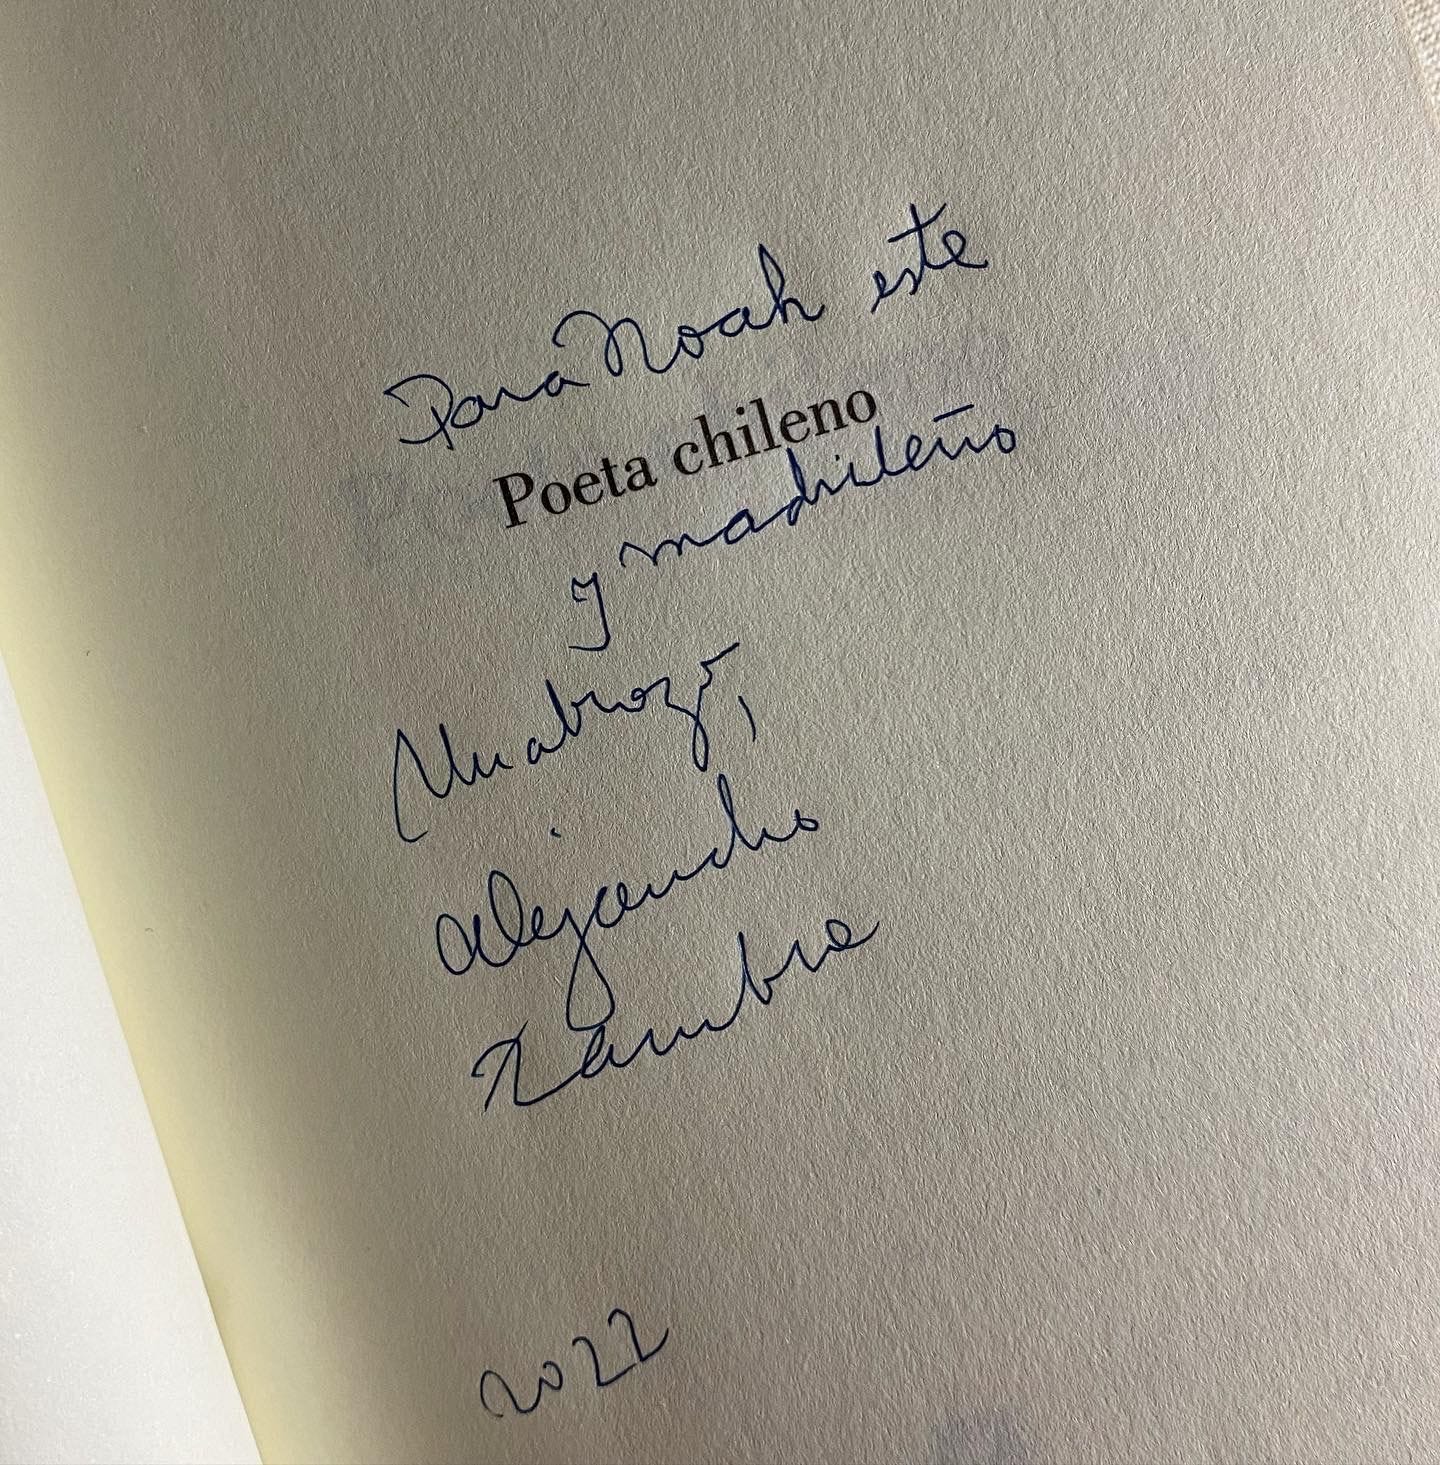 Para Noah este
Poeta chileno
y madrileño
Un abrazo,
Alejandro
Zambra
2022